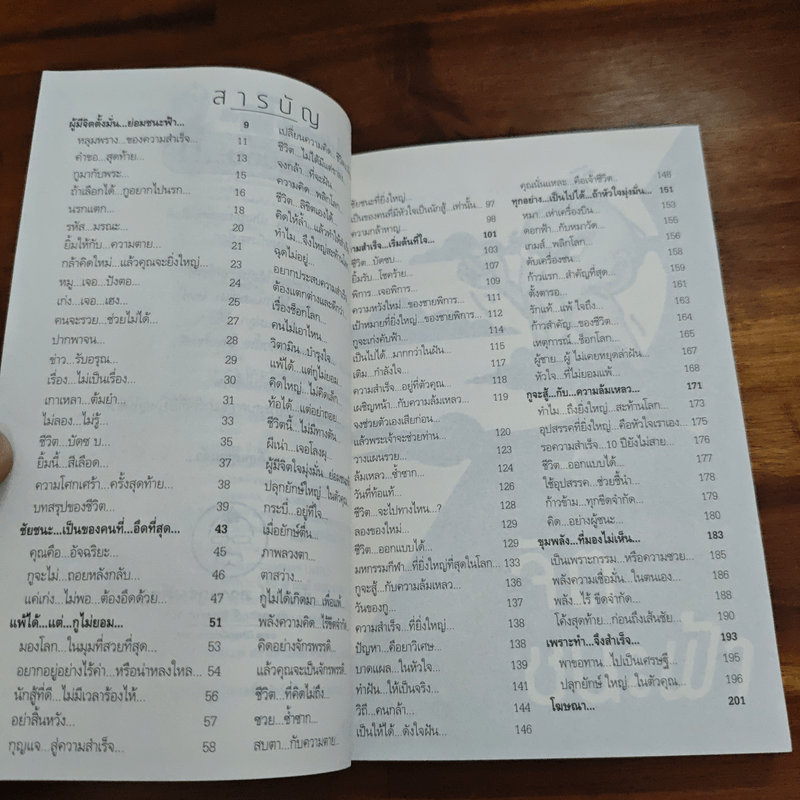 สารบัญ
ผู้มีจิตตั้งมั่น...ย่อมชนะฟ้า... 9
หลุมพราง...ของความสำเร็จ... 11
คำขอ...สุดท้าย... 13
กูมากับพระ... 15
ถ้าเลือกได้...กูอยากไปนรก... 16
นรกแตก... 18
รหัส...มรณะ... 20
ยิ้มให้กับ...ความตาย... 21
กล้าคิดใหม่...แล้วคุณจะยิ่งใหญ่... 23
หมู...เจอ...ปังตอ... 24
เก่ง...เจอ...เฮง... 25
คนจะรวย...ช่วยไม่ได้... 27
ปากพาจน... 28
ข่าว...รับอรุณ... 29
เรื่อง...ไม่เป็นเรื่อง... 30
เกาเหลา...ต้มยำ... 31
ไม่ลอง...ไม่รู้... 33
ชีวิต...บัดซบ... 35
ยิ้มนี้...สีเลือด... 37
ความโศกเศร้า...ครั้งสุดท้าย... 38
บทสรุปของชีวิต... 39
ชัยชนะ...เป็นของคนที่...อึดที่สุด... 43
คุณคือ...อัจฉริยะ... 45
กูจะไม่...ถอยหลังกลับ... 46
แค่เก่ง...ไม่พอ...ต้องอึดด้วย... 47
แพ้ได้...แต่...กูไม่ยอม... 51
มองโลก...ในมุมที่สวยที่สุด... 53
อยากอยู่อย่างไร้ค่า...หรือน่าหลงใหล... 54
นักสู้ที่ดี...ไม่มีเวลาร้องไห้... 56
อย่าสิ้นหวัง... 57
กุญแจ...สู่ความสำเร็จ... 58
เปลี่ยนความคิด...
ชีวิต...ไม่ได้มีแค่
จงกล้า...ที่จะฝัน
ความคิด...พลิกโลก
ชีวิต...ลิขิตเองได้
คิดให้ล้ำ...แล้วทำให้
ทำไม...จึงใหญ่
ฉุดไม่อยู่...
อยากประสบความสำเร็จ
ต้องแตกต่างและดีกว่า
เรื่องช็อกโลก...
คนไม่เอาไหน...
วิตามิน...บำรุงใจ...
แพ้ได้...แต่กูไม่ยอม
คิดใหญ่...ไม่คิดเล็ก
ท้อได้...แต่อย่าถอย
ชีวิตนี้...ไม่มีทางตัน
ผีเน่า...เจอโลงผุ
ผู้มีจิตใจมุ่งมั่น...ย่อม
ปลุกยักษ์ใหญ่...ในตัวคุณ
กระบี่...อยู่ที่ใจ...
เมื่อยักษ์ตื่น...
ภาพลวงตา...
ตาสว่าง...
กูไม่ได้เกิดมา...เพื่อแพ้
พลังความคิด...ไร้ขีดจำกัด
คิดอย่างจักรพรรดิ...
แล้วคุณจะเป็นจักรพรรดิ...
ชีวิต...ที่คิดไม่ถึง...
ซวย...ซ้ำซาก...
สบตา...กับความตาย...
ชัยชนะที่ยิ่งใหญ่...
เป็นของคนที่มีหัวใจเป็นนักสู้...เท่านั้น... 97
ความกล้าหาญ 98
ความสำเร็จ...เริ่มต้นที่ใจ... 101
ชีวิต...บัดซบ 103
ยิ้มรับ...โชคร้าย 107
พิการ...เจอพิการ... 109
ความหวังใหม่...ของชายพิการ... 111
เป้าหมายที่ยิ่งใหญ่...ของชายพิการ... 112
กูจะเก่งคับฟ้า... 114
เป็นไปได้...มากกว่าในฝัน... 115
เติม...กำลังใจ... 117
ความสำเร็จ...อยู่ที่ตัวคุณ... 118
เผชิญหน้า...กับความล้มเหลว... 119
จงช่วยตัวเองเสียก่อน...
แล้วพระเจ้าจะช่วยท่าน... 120
วางแผนรวย... 123
ล้มเหลว...ซ้ำซาก... 125
วันที่ท้อแท้... 126
ชีวิต...จะไปทางไหน...? 128
ลองของใหม่... 129
ชีวิต...ออกแบบได้... 129
มหกรรมกีฬา...ที่ยิ่งใหญ่ที่สุดในโลก... 133
กูจะสู้...กับความล้มเหลว... 136
วันของกู... 137
ความสำเร็จ...ที่ยิ่งใหญ่... 138
ปัญหา...คือยาวิเศษ... 139
บาดแผล...ในหัวใจ... 141
ทำฝัน...ให้เป็นจริง... 144
วิถี...คนกล้า... 146
เป็นให้ได้...ดังใจฝัน...
คุณนั่นแหละ...คือเจ้าชีวิต... 148
ทุกอย่าง...เป็นไปได้...ถ้าหัวใจมุ่งมั่น... 151
หมา...เห่าเครื่องบิน... 153
ดอกฟ้า...กับหมาวัด... 155
เกมส์...พลิกโลก... 156
ดับเครื่องชน... 158
ก้าวแรก...สำคัญที่สุด... 159
ตั้งตารอ... 161
รักแท้...แพ้ ใจถึง... 163
ก้าวสำคัญ...ของชีวิต... 164
เหตุการณ์...ช็อกโลก... 165
ผู้ชาย...ผู้ ไม่เคยหยุดล่าฝัน... 167
หัวใจ...ที่ไม่ยอมแพ้... 168
กูจะสู้...กับ...ความล้มเหลว... 171
ทำไม...ถึงยิ่งใหญ่...สะท้านโลก... 174
อุปสรรคที่ยิ่งใหญ่...คือหัวใจเราเอง... 175
รอความสำเร็จ...10 ปียังไม่สาย... 176
ชีวิต...ออกแบบได้... 177
ใช้อุปสรรค...ช่วยชี้นำ... 178
ก้าวข้าม...ทุกขีดจำกัด... 179
คิด...อย่างผู้ชนะ... 180
ขุมพลัง...ที่มองไม่เห็น... 183
เป็นเพราะกรรม...หรือความซวย... 185
พลังความเชื่อมั่น...ในตนเอง... 186
พลัง...ไร้ ขีดจำกัด... 188
โค้งสุดท้าย...ก่อนถึงเส้นชัย... 190
เพราะทำ...จึงสำเร็จ... 193
พาขอทาน...ไปเป็นเศรษฐี... 195
ปลุกยักษ์ ใหญ่...ในตัวคุณ... 196
โฆษณา... 201